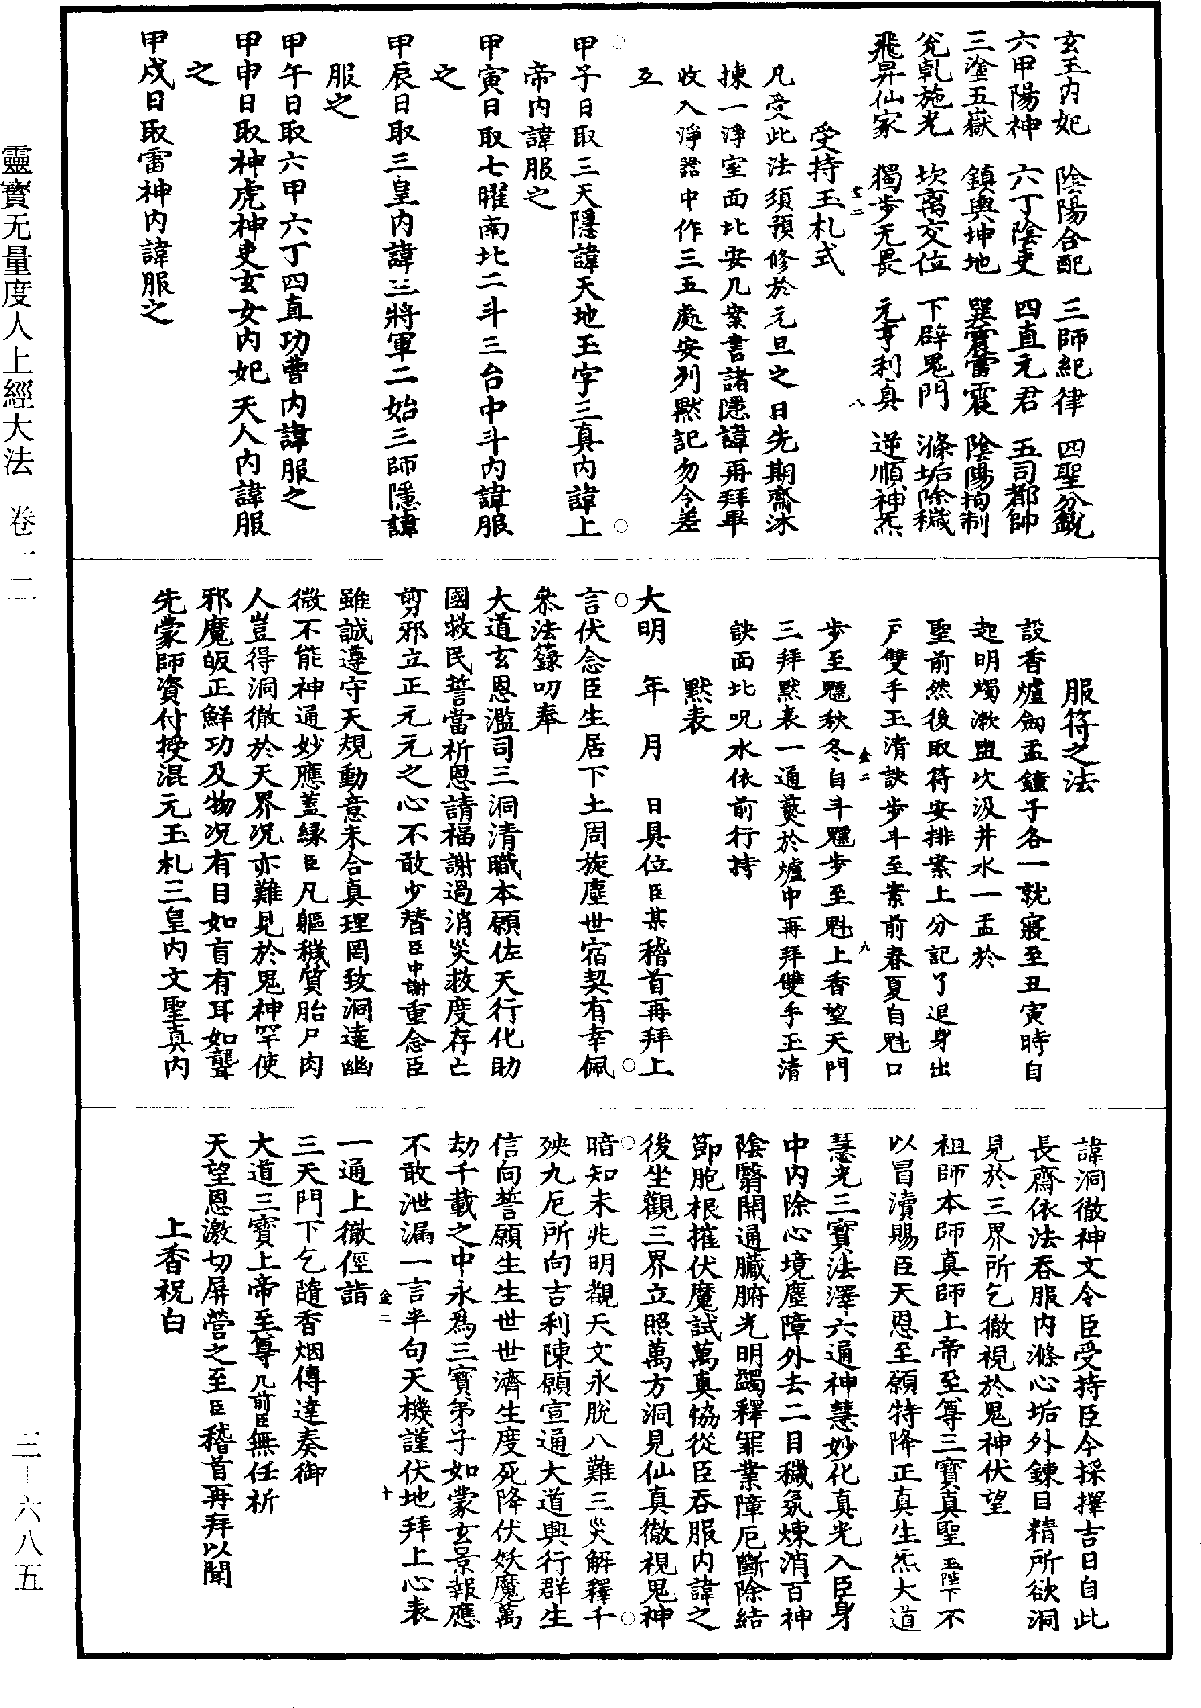 玄玉內妃　陰陽合配　三師紀律　四聖分銳
六甲陽神　六丁陰吏　四直元君　五司都帥
三塗五嶽　鎮輿坤地　巽震雷震　陰陽拘制
兊乾施光　坎离交位　下辟鬼門　滌垢除穢
飛昇仙家　獨步无畏　元亨利真　逆順神炁
受持玉札式
凡受此法須預修於元旦之日先期齋沐
揀一淨室面北安几案書諸隱諱再拜畢
收入淨器中作三五處安列黙記勿令差
互
甲子日取三天隱諱天地玉字三真內諱上
帝內諱服之
甲寅日取七曜南北二斗三台中斗內諱服
之
甲辰日取三皇內諱三將軍二始三師隱諱
服之
甲午日取六甲六丁四直功曹內諱服之
甲申日取神虎神吏玄女內妃天人內諱服
之
甲戍日取雷神內諱服之
服符之法
設香爐劔盂鐘子各一就寢至丑寅時自
起明燭漱盥次汲井水一盂於
聖前然後取符安排案上分記了退身出
戶雙手玉清訣步斗至案前春夏自魁口
步至魒秋冬自斗魒步至魁上香望天門
三拜黙表一通爇於爐中再拜雙手玉清
訣面北呪水依前行持
黙表
大明　年　月　日具位臣某稽首再拜上
言伏念臣生居下土周旋塵世宿契有幸佩
叅法籙叨奉
大道玄恩濫司三洞清職本願佐天行化助
國救民誓當祈恩請福謝過消災救度存亡
剪邪立正元元之心不敢少替臣中謝重念臣
雖誠遵守天規動意未合真理罔致洞達幽
微不能神通妙應蓋緣臣凡軀穢質胎尸肉
人豈得洞徹於天界況亦難見於鬼神罕使
邪魔皈正鮮功及物況有目如盲有耳如聾
先蒙師資付授混元玉札三皇內文聖真內
諱洞徹神文令臣受持臣今採擇吉日自此
長齋依法吞服內滌心垢外鍊目精所欲洞
見於三界所乞徹視於鬼神伏望
祖師本師真師上帝至尊三寶真聖玉陛下不
以冒瀆賜臣天恩至願特降正真生炁大道
慧光三寶法澤六通神慧妙化真光入臣身
中內除心境塵障外去二目穢氛煉消百神
陰翳開通臟腑光明蠲釋罪業障厄斷除結
節胞根摧伏魔試萬真恊從臣吞服內諱之
後坐觀三界立照萬方洞見仙真徹視鬼神
暗知未兆明覩天文永脫八難三災解釋千
殃九厄所向吉利陳願宣通大道興行群生
信向誓願生生世世濟生度死降伏妖魔萬
劫千載之中永為三寶弟子如蒙玄景報應
不敢泄漏一言半句天機謹伏地拜上心表
一通上徹徑詣
三天門下乞隨香烟傳達奏御
大道三寶上帝至尊几前臣無任祈
天望恩激切屏營之至臣稽首再拜以聞
上香祝白
靈寶无量度人上經大法　卷一二
三—六八五